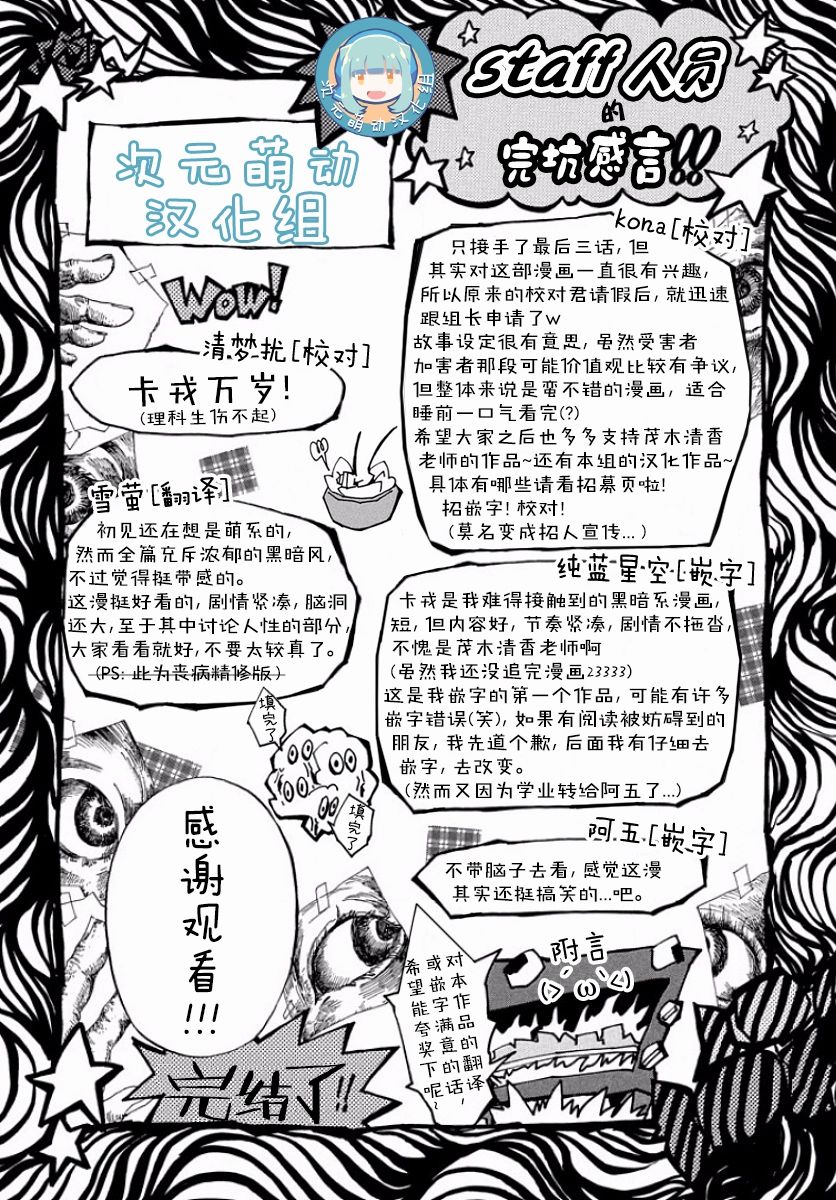 次元萌动汉化组
staff人员
的
完坑感言!!
次元萌动
汉化组
wow!
kona[校对]
只接手了最后三话, 但
其实对这部漫画一直很有兴趣,
所以原来的校对君请假后, 就迅速
跟组长申请了w
故事设定很有意思, 虽然受害者
加害者那段可能价值观比较有争议,
但整体来说是蛮不错的漫画, 适合
睡前一口气看完(?)
希望大家之后也多多支持茂木清香
老师的作品~还有本组的汉化作品~
具体有哪些请看招募页啦!
招嵌字! 校对!
(莫名变成招人宣传...)
清梦扰[校对]
卡戎万岁!
(理科生伤不起)
雪萤[翻译]
初见还在想是萌系的,
然而全篇充斥浓郁的黑暗风,
不过觉得挺带感的。
这漫挺好看的, 剧情紧凑, 脑洞
还大, 至于其中讨论人性的部分,
大家看看就好, 不要太较真了。
(PS: 此为丧病精修版)
纯蓝星空[嵌字]
卡戎是我难得接触到的黑暗系漫画,
短, 但内容好, 节奏紧凑, 剧情不拖沓,
不愧是茂木清香老师啊
(虽然我还没追完漫画23333)
这是我嵌字的第一个作品, 可能有许多
嵌字错误(笑), 如果有阅读被妨碍到的
朋友, 我先道个歉, 后面我有仔细去
嵌字, 去改变。
(然而又因为学业转给阿五了...)
填完了
填完了
阿五[嵌字]
不带脑子去看, 感觉这漫
其实还挺搞笑的...吧。
感谢观看!!!
附言
(>´ω`<)
对本作品的翻译
或嵌字满意的话,
希望能夸奖下呢~
完结了!!